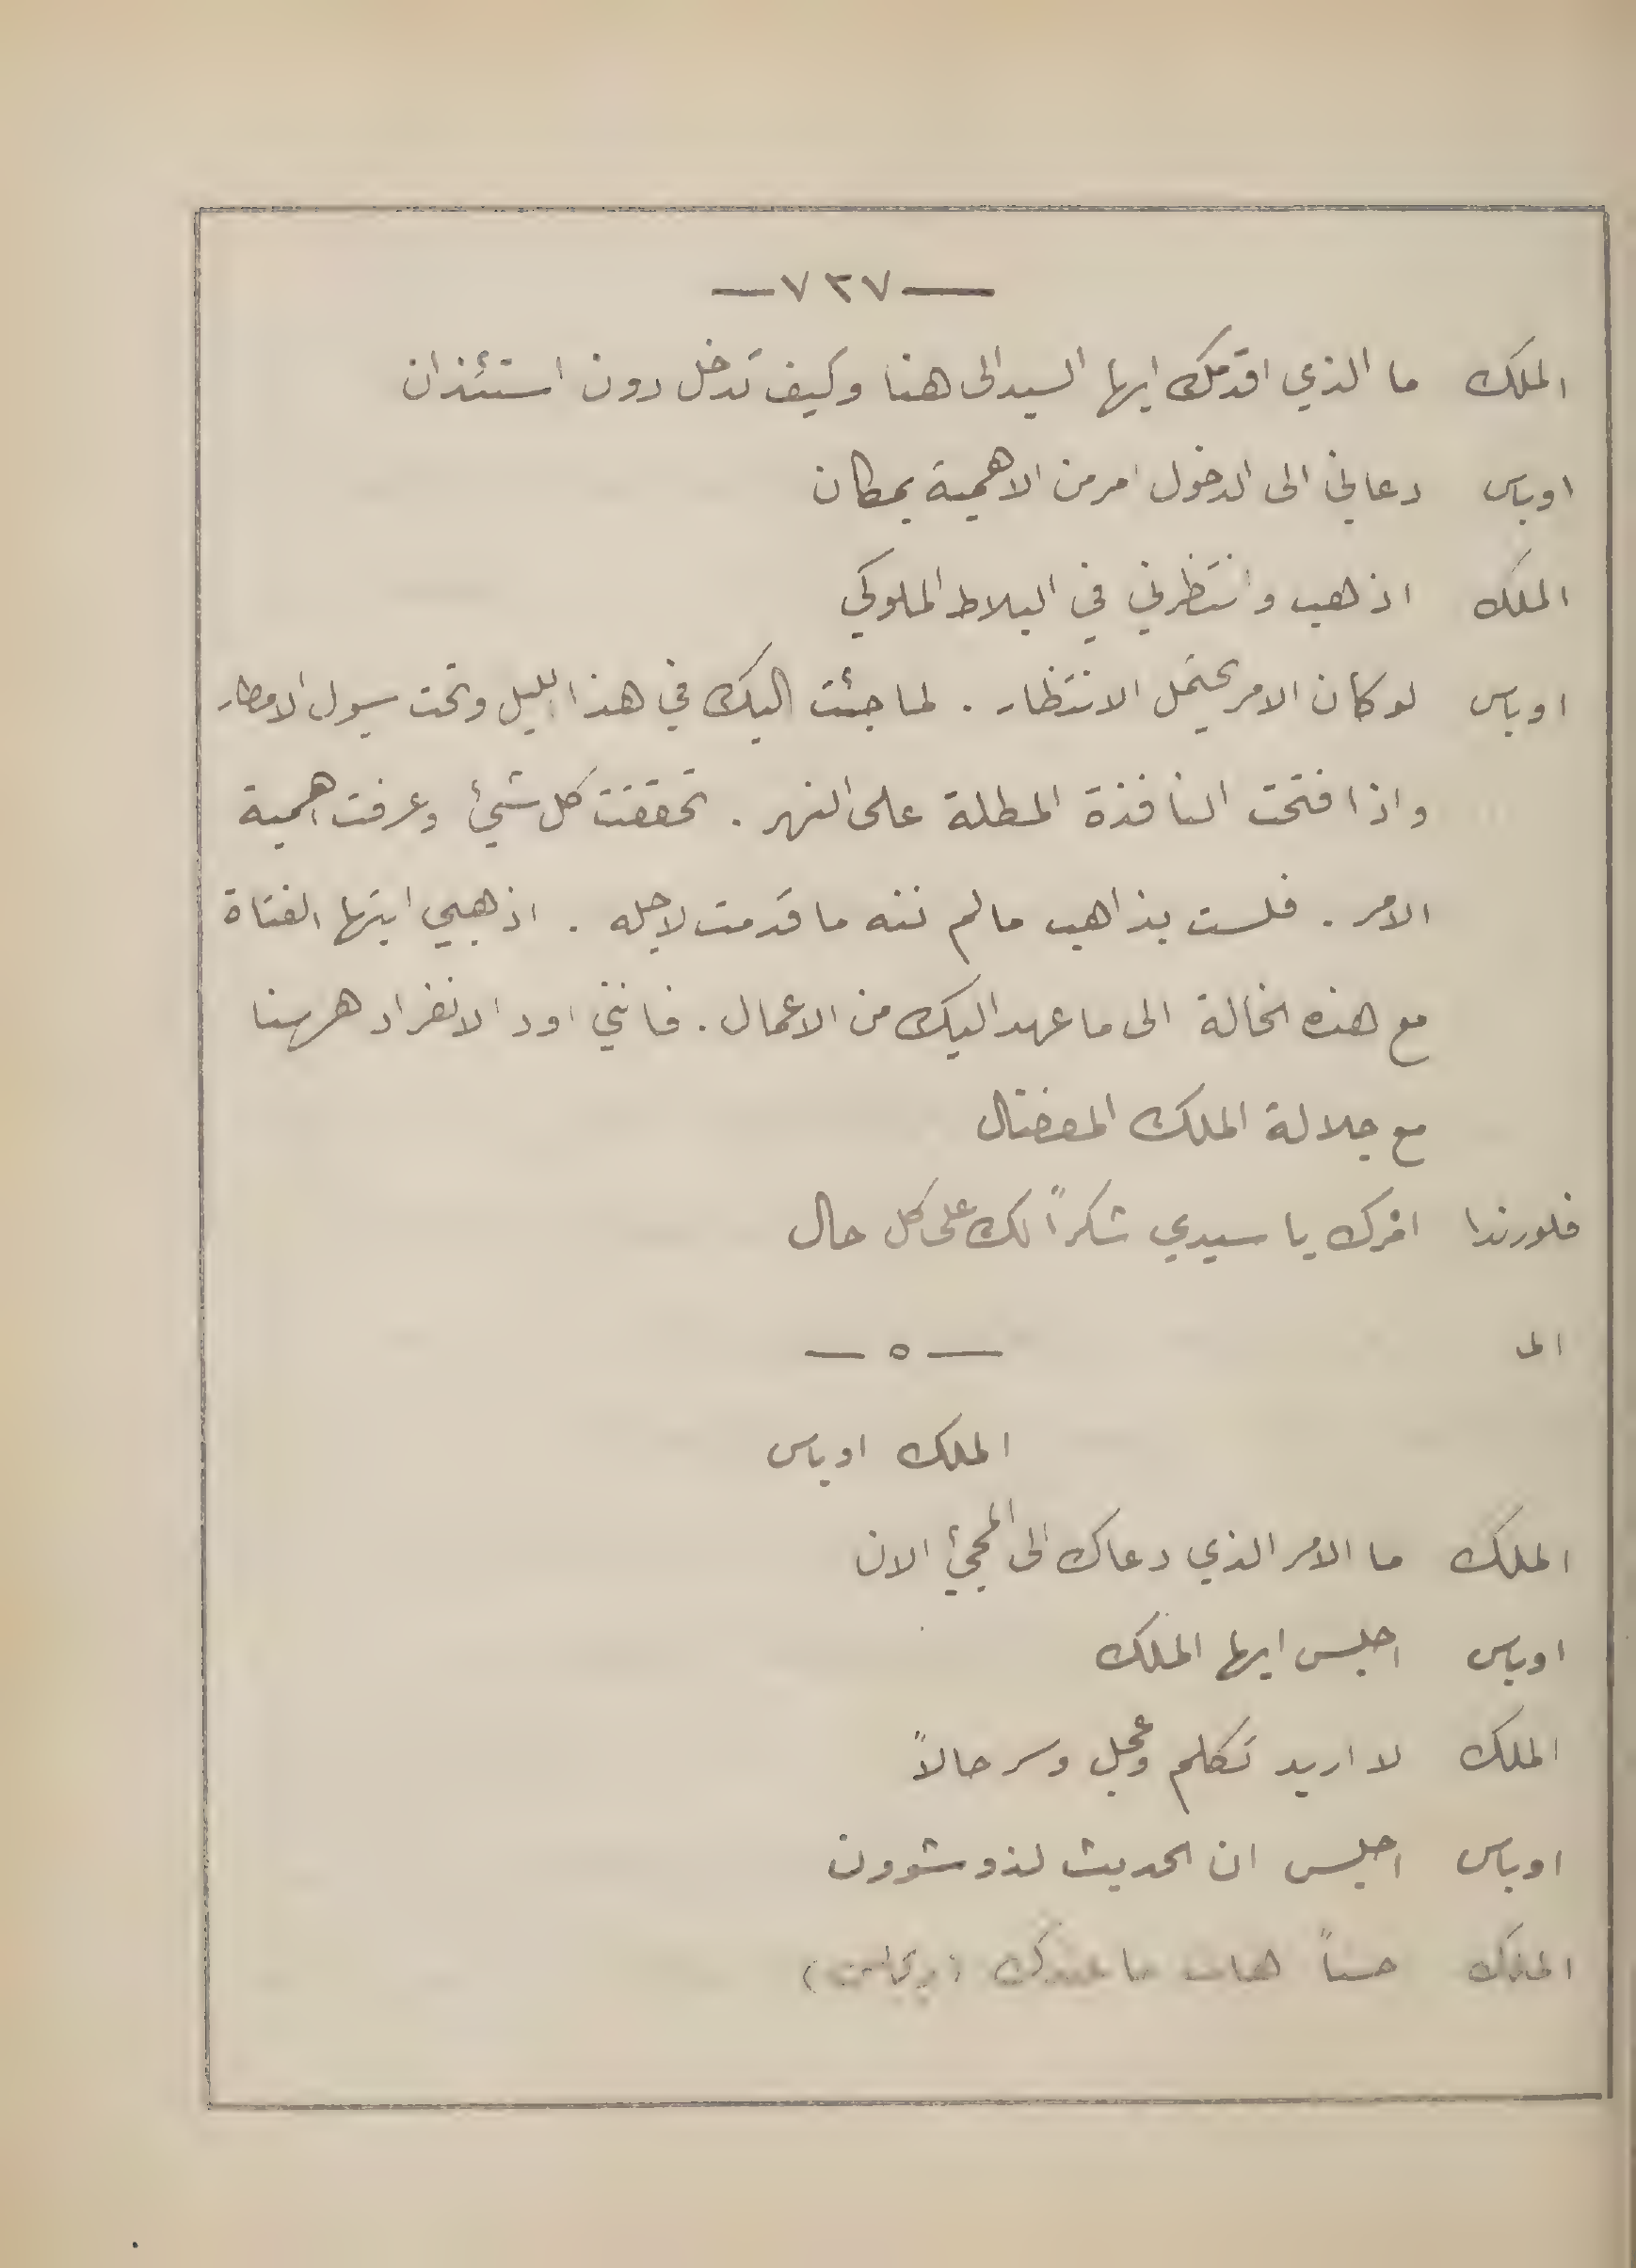 —٧٣٧—
الملك ما الذي اقدمّك ايها السيد الى هنا وكيف تدخل دون استئذان
اوباس دعاني الى الدخول امر من الاهمية بمكان
الملك اذهب وانتظرني في البلاط الملوكي
اوباس لو كان الامر يحتمل الانتظار . لما جئت اليك في هذا الليل وتحت سيول الامطار
واذا فتحت النافذة المطلة على النهر . تحققت كل شئ وعرفت اهمية
الامر . فلست بذاهب ما لم ننه ما قدمت لاجله . اذهبي ايتها الفتاة
مع هذه الخالة الى ما عهد اليك من الاعمال . فانني اود الانفراد ههنا
مع جلالة الملك المفضال
فلورندا امرك يا سيدي شكراً لك على كل حال
الم
— ٥ —
الملك اوباس
الملك ما الامر الذي دعاك الى المجئ الان
اوباس اجلس ايها الملك
الملك لا اريد تكلم وعجل وسر حالاً
اوباس اجلس ان الحديث لذو شوون
الملك حسناً هات ما عندك (ويجلس)